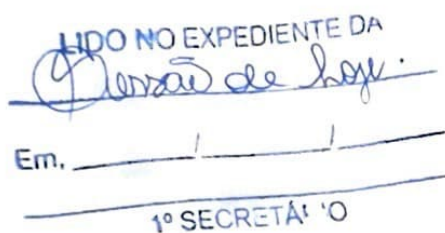 LIDO NO EXPEDIENTE DA
Sessão de hoje.
Em. ____/____/____
1º SECRETÁRIO